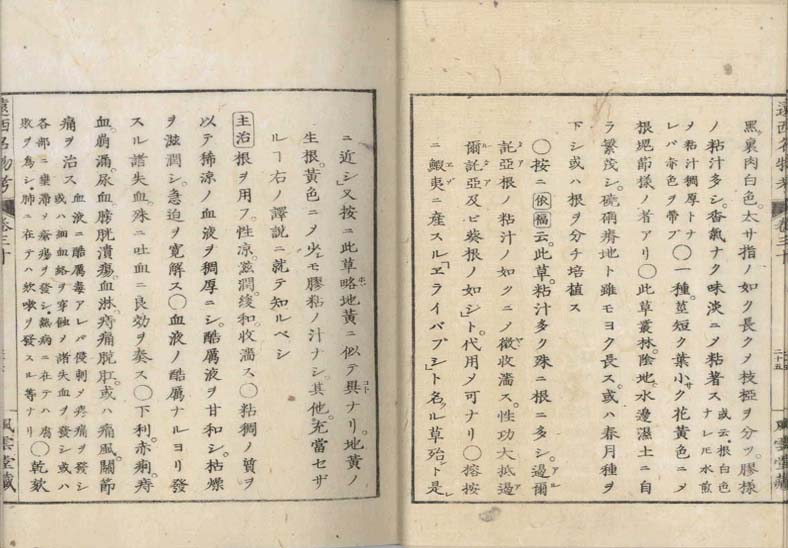 遠西名物考 卷三十 二十五 風雲堂藏
黑。裏肉白色。太サ指ノ如ク長クメ枝椏ヲ分ツ。膠樣
ノ粘汁多シ。香氣ナク味淡ニメ粘著ス 或云。根白色 ナレ𪜈水煎
ヲ粘汁稠厚トナ レバ赤色ヲ帶ブ 〇一種。莖短ク葉小サク花黃色ニメ
根塊節樣ノ者アリ〇此草叢林。陰地。水邊濕土ニ自
ラ繁茂シ。磽确瘠地ト雖モヨク長ス。或ハ春月種ヲ
下シ或ハ根ヲ分チ培植ス
〇按ニ依福云。此草。粘汁多ク殊ニ根ニ多シ。過爾
託亞根ノ粘汁ノ如クニメ微收濇ス。性功大抵過
爾託亞及ビ葵根ノ如シト。代用メ可ナリ〇榕按
ニ蝦夷ニ産スル「ヱライバブシ」ト名ル草殆ド是
ニ近シ」又按ニ此草略地黃ニ似テ異ナリ。地黃ノ
生根。黃色ニメ少シモ膠粘ノ汁ナシ。其他。充當セザ
ルヿ右ノ譯説ニ就テ知ルベシ
主治 根ヲ用フ。性涼。滋潤。緩和收濇ス〇粘稠ノ質ヲ
以テ稀涼ノ血液ヲ稠厚ニシ。酷厲液ヲ甘和シ。枯燥
ヲ滋潤シ。急迫ヲ寬解ス〇血液ノ酷厲ナルヨリ發
スル諸失血殊ニ吐血ニ良効ヲ奏ス〇下利。赤痢。痔
血。崩漏。尿血。膀胱潰瘍。血淋。痔痛脱肛。或ハ痛風。關節
痛ヲ治ス 血液ニ酷厲毒アレバ侵刺メ疼痛ヲ發シ 或ハ細血絡ヲ穿蝕メ諸失血ヲ發シ或ハ
各部ニ壅滯メ瘡瘍ヲ發シ。熱病ニ在テハ腐 敗ヲ為シ。肺ニ在テハ欬嗽ヲ發スル等ナリ 〇乾欬
遠西名物考 卷三十 風雲堂藏